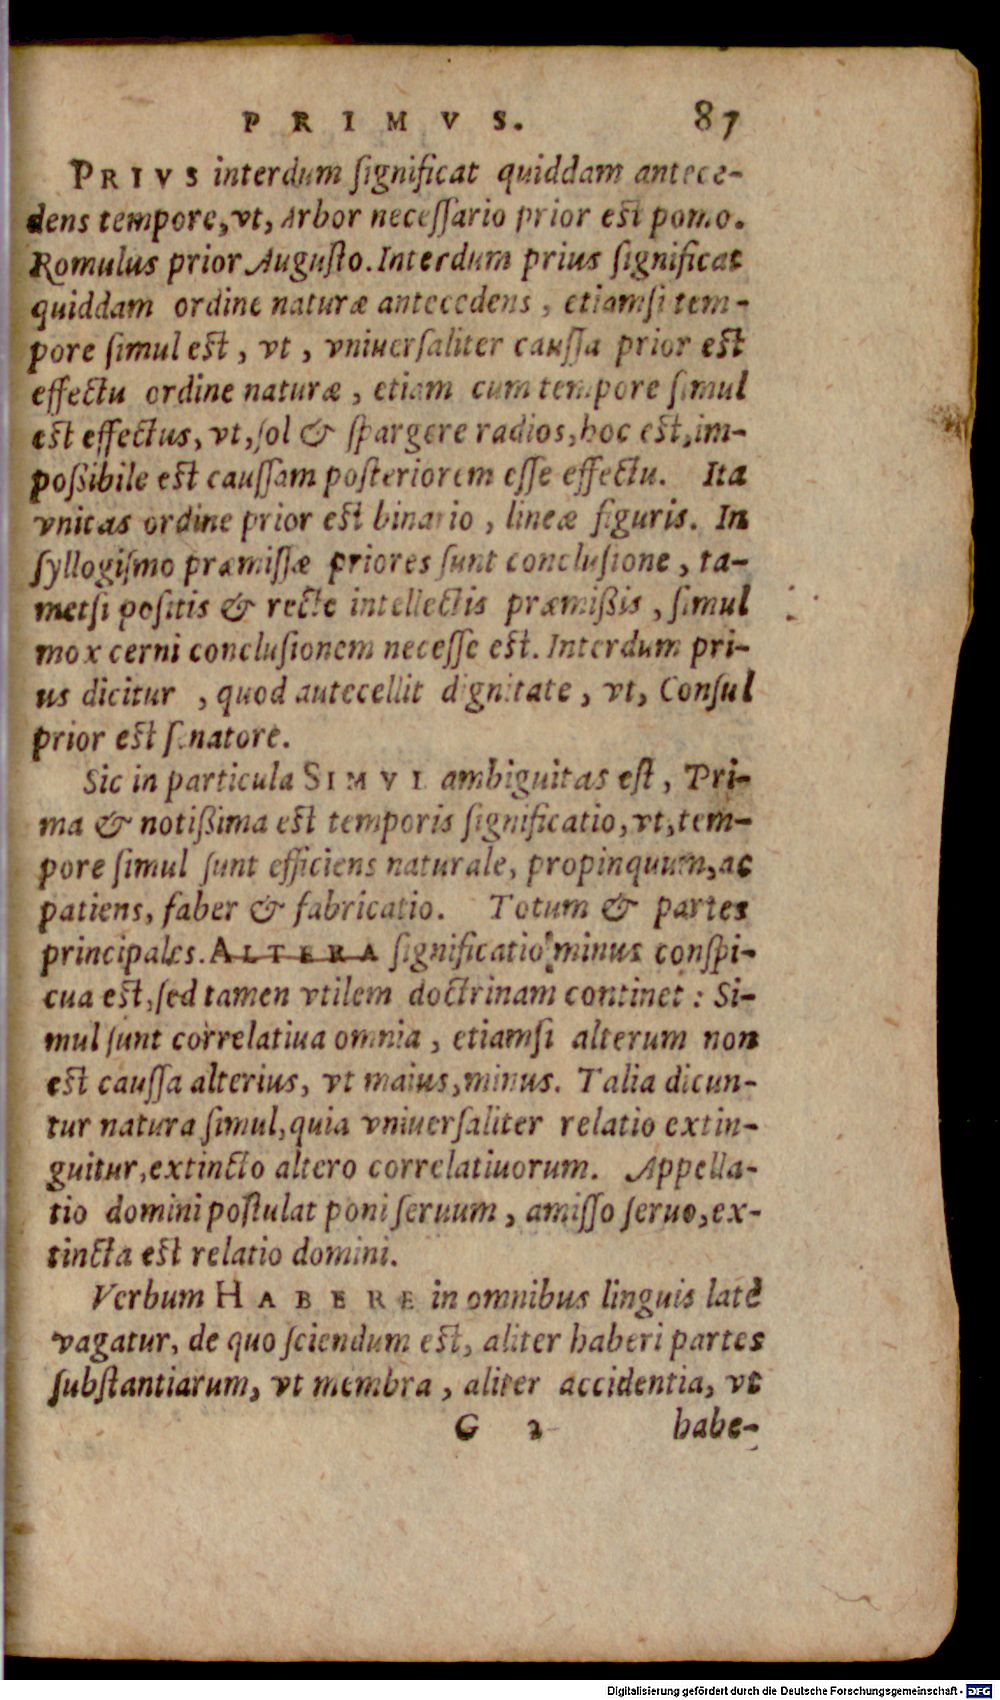 PRIMVS. 87
PRIVS interdum ſignificat quiddam antece-
dens tempore, vt, Arbor neceſſario prior est pomo.
Romulus prior Auguſto. Interdum prius ſignificat
quiddam ordine naturæ antecedens, etiamſi tem-
pore ſimul est, vt, vniuerſaliter cauſſa prior est
effectu ordine naturæ, etiam cum tempore ſimul
est effectus, vt, ſol & ſpargere radios, hoc est, im-
poßibile est cauſſam poſteriorem eſſe effectu. Ita
vnitas ordine prior est binario, lineæ figuris. In
ſyllogiſmo præmiſſæ priores ſunt concluſione, ta-
metſi poſitis & recte intellectis præmißis, ſimul
mox cerni concluſionem neceſſe est. Interdum pri-
us dicitur, quod autecellit dignitate, vt, Conſul
prior est ſenatore.
Sic in particula SIMVL ambiguitas eſt, Pri-
ma & notißima est temporis ſignificatio, vt, tem-
pore ſimul ſunt efficiens naturale, propinquum, ac
patiens, faber & fabricatio. Totum & partes
principales. ALTERA ſignificatio minus conſpi-
cua est, ſed tamen vtilem doctrinam continet: Si-
mul ſunt correlatiua omnia, etiamſi alterum non
est cauſſa alterius, vt maius, minus. Talia dicun-
tur natura ſimul, quia vniuerſaliter relatio extin-
guitur, extincto altero correlatiuorum. Appella-
tio domini poſtulat poni ſeruum, amiſſo ſeruo, ex-
tincta est relatio domini.
Verbum HABERE in omnibus linguis latè
vagatur, de quo ſciendum est, aliter haberi partes
ſubſtantiarum, vt membra, aliter accidentia, vt
G 2 habe-
Digitalisierung gefördert durch die Deutsche Forschungsgemeinschaft - DFG